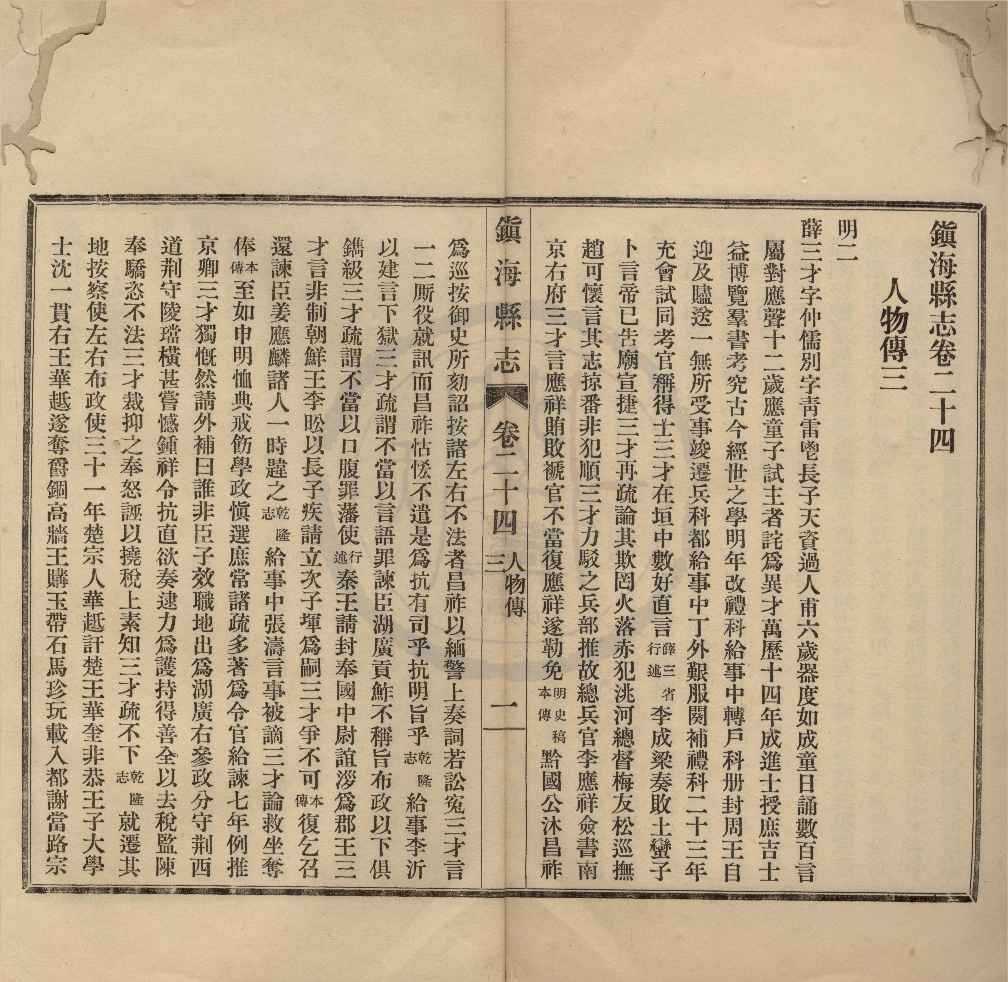 鎭海縣志卷二十四
人物傳三
明二
薛三才字仲儒別字靑雷㲄長子天資過人甫六歲器度如成童日誦數百言
屬對應聲十二歲應童子試主者詫爲異才萬歷十四年成進士授庶吉士
益博覽羣書考究古今經世之學明年改禮科給事中轉戶科册封周王自
迎及贐送一無所受事竣遷兵科都給事中丁外艱服闋補禮科二十三年
充會試同考官稱得士三才在垣中數好直言薛三省行述李成梁奏敗土蠻子
卜言帝已告廟宣捷三才再疏論其欺罔火落赤犯洮河總督梅友松巡撫
趙可懷言其志掠番非犯順三才力駁之兵部推故總兵官李應祥僉書南
京右府三才言應祥賄敗褫官不當復應祥遂勒免明史稿本傳黔國公沐昌祚
鎭海縣志 卷二十四 人物傳三 一
爲巡按御史所劾詔按諸左右不法者昌祚以緬警上奏詞若訟寃三才言
一二厮役就訊而昌祚怙恡不遣是爲抗有司乎抗明旨乎乾隆志給事李沂
以建言下獄三才疏謂不當以言語罪諫臣湖廣貢鮓不稱旨布政以下俱
鐫級三才疏謂不當以口腹罪藩使行述秦王請封奉國中尉誼漈爲郡王三
才言非制朝鮮王李昖以長子疾請立次子琿爲嗣三才爭不可本傳復乞召
還諫臣姜應麟諸人一時韙之乾隆志給事中張濤言事被謫三才論救坐奪
俸本傳至如申明恤典戒飭學政愼選庶常諸疏多著爲令官給諫七年例推
京卿三才獨慨然請外補曰誰非臣子效職地出爲湖廣右參政分守荆西
道荆守陵璫橫甚嘗憾鍾祥令抗直欲奏逮力爲護持得善全以去稅監陳
奉驕恣不法三才裁抑之奉怒誣以撓稅上素知三才疏不下乾隆志就遷其
地按察使左右布政使三十一年楚宗人華趆訐楚王華奎非恭王子大學
士沈一貫右王華趆遂奪爵錮高牆王購玉帶石馬珍玩載入都謝當路宗